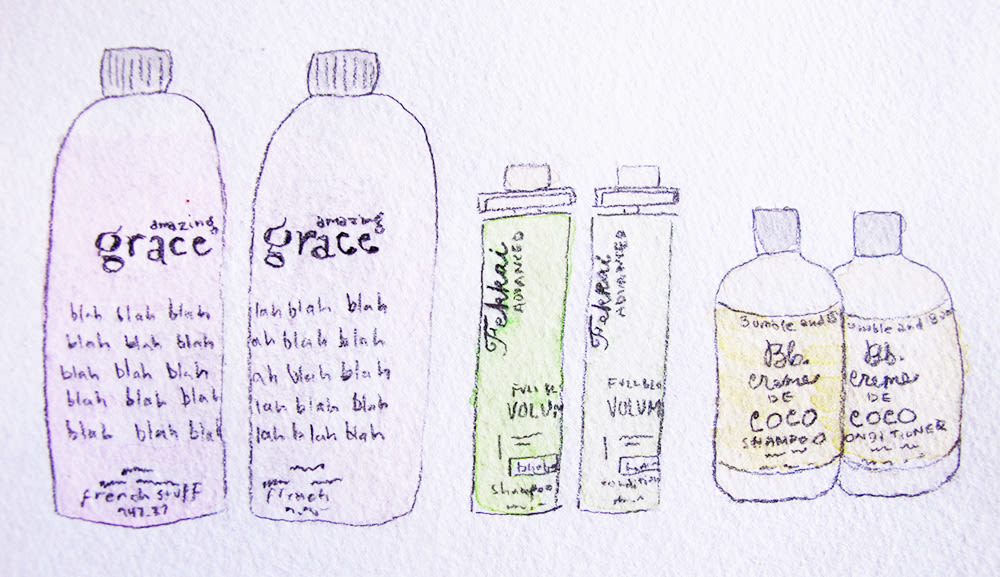 amazing
grace
blah blah blah
blah blah blah
blah blah blah
blah blah blah
blah blah blah
french stuff
947.37
amazing
grace
lah blah blah
ah blah blah
ah blah blah
lah blah blah
lah blah blah
french
Fekkai
ADVANCED
FULL BL
VOLUM
shampoo
Fekkai
ADVANCED
FULL BLO
VOLUM
condition
Bumble and B
Bb.
creme
DE
COCO
SHAMPOO
umble and B
Bb.
creme
DE
COCO
ONDITIONER